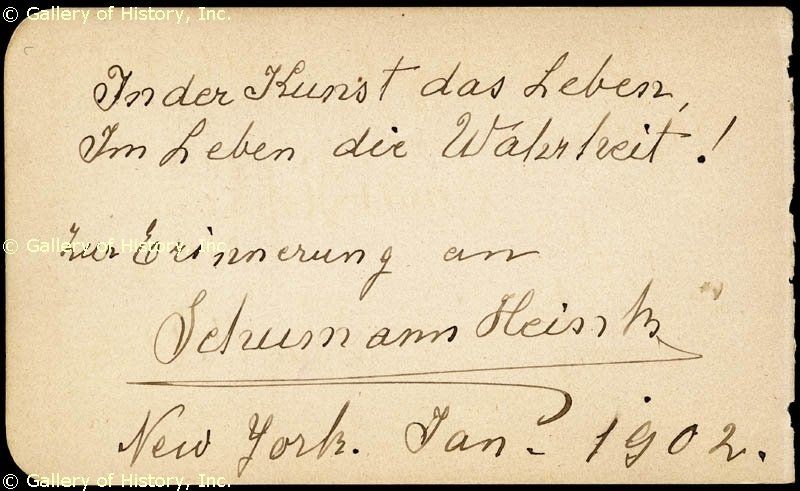 © Gallery of History, Inc.
© Gallery of History, Inc.
In der Kunst das Leben,
Im Leben die Wahrheit!
© Gallery of History, Inc.
Zur Erinnerung an
Schumann Heink
New York. Jan. 1902.
© Gallery of History, Inc.